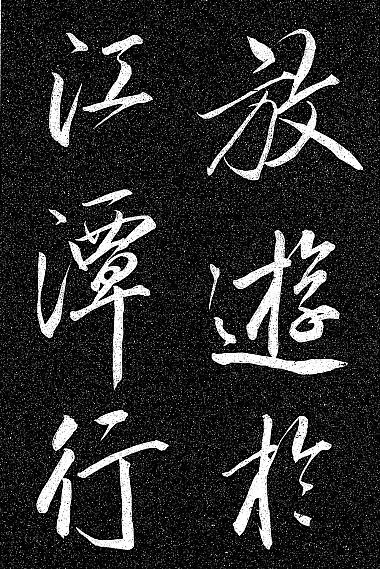 放遊於
江潭行